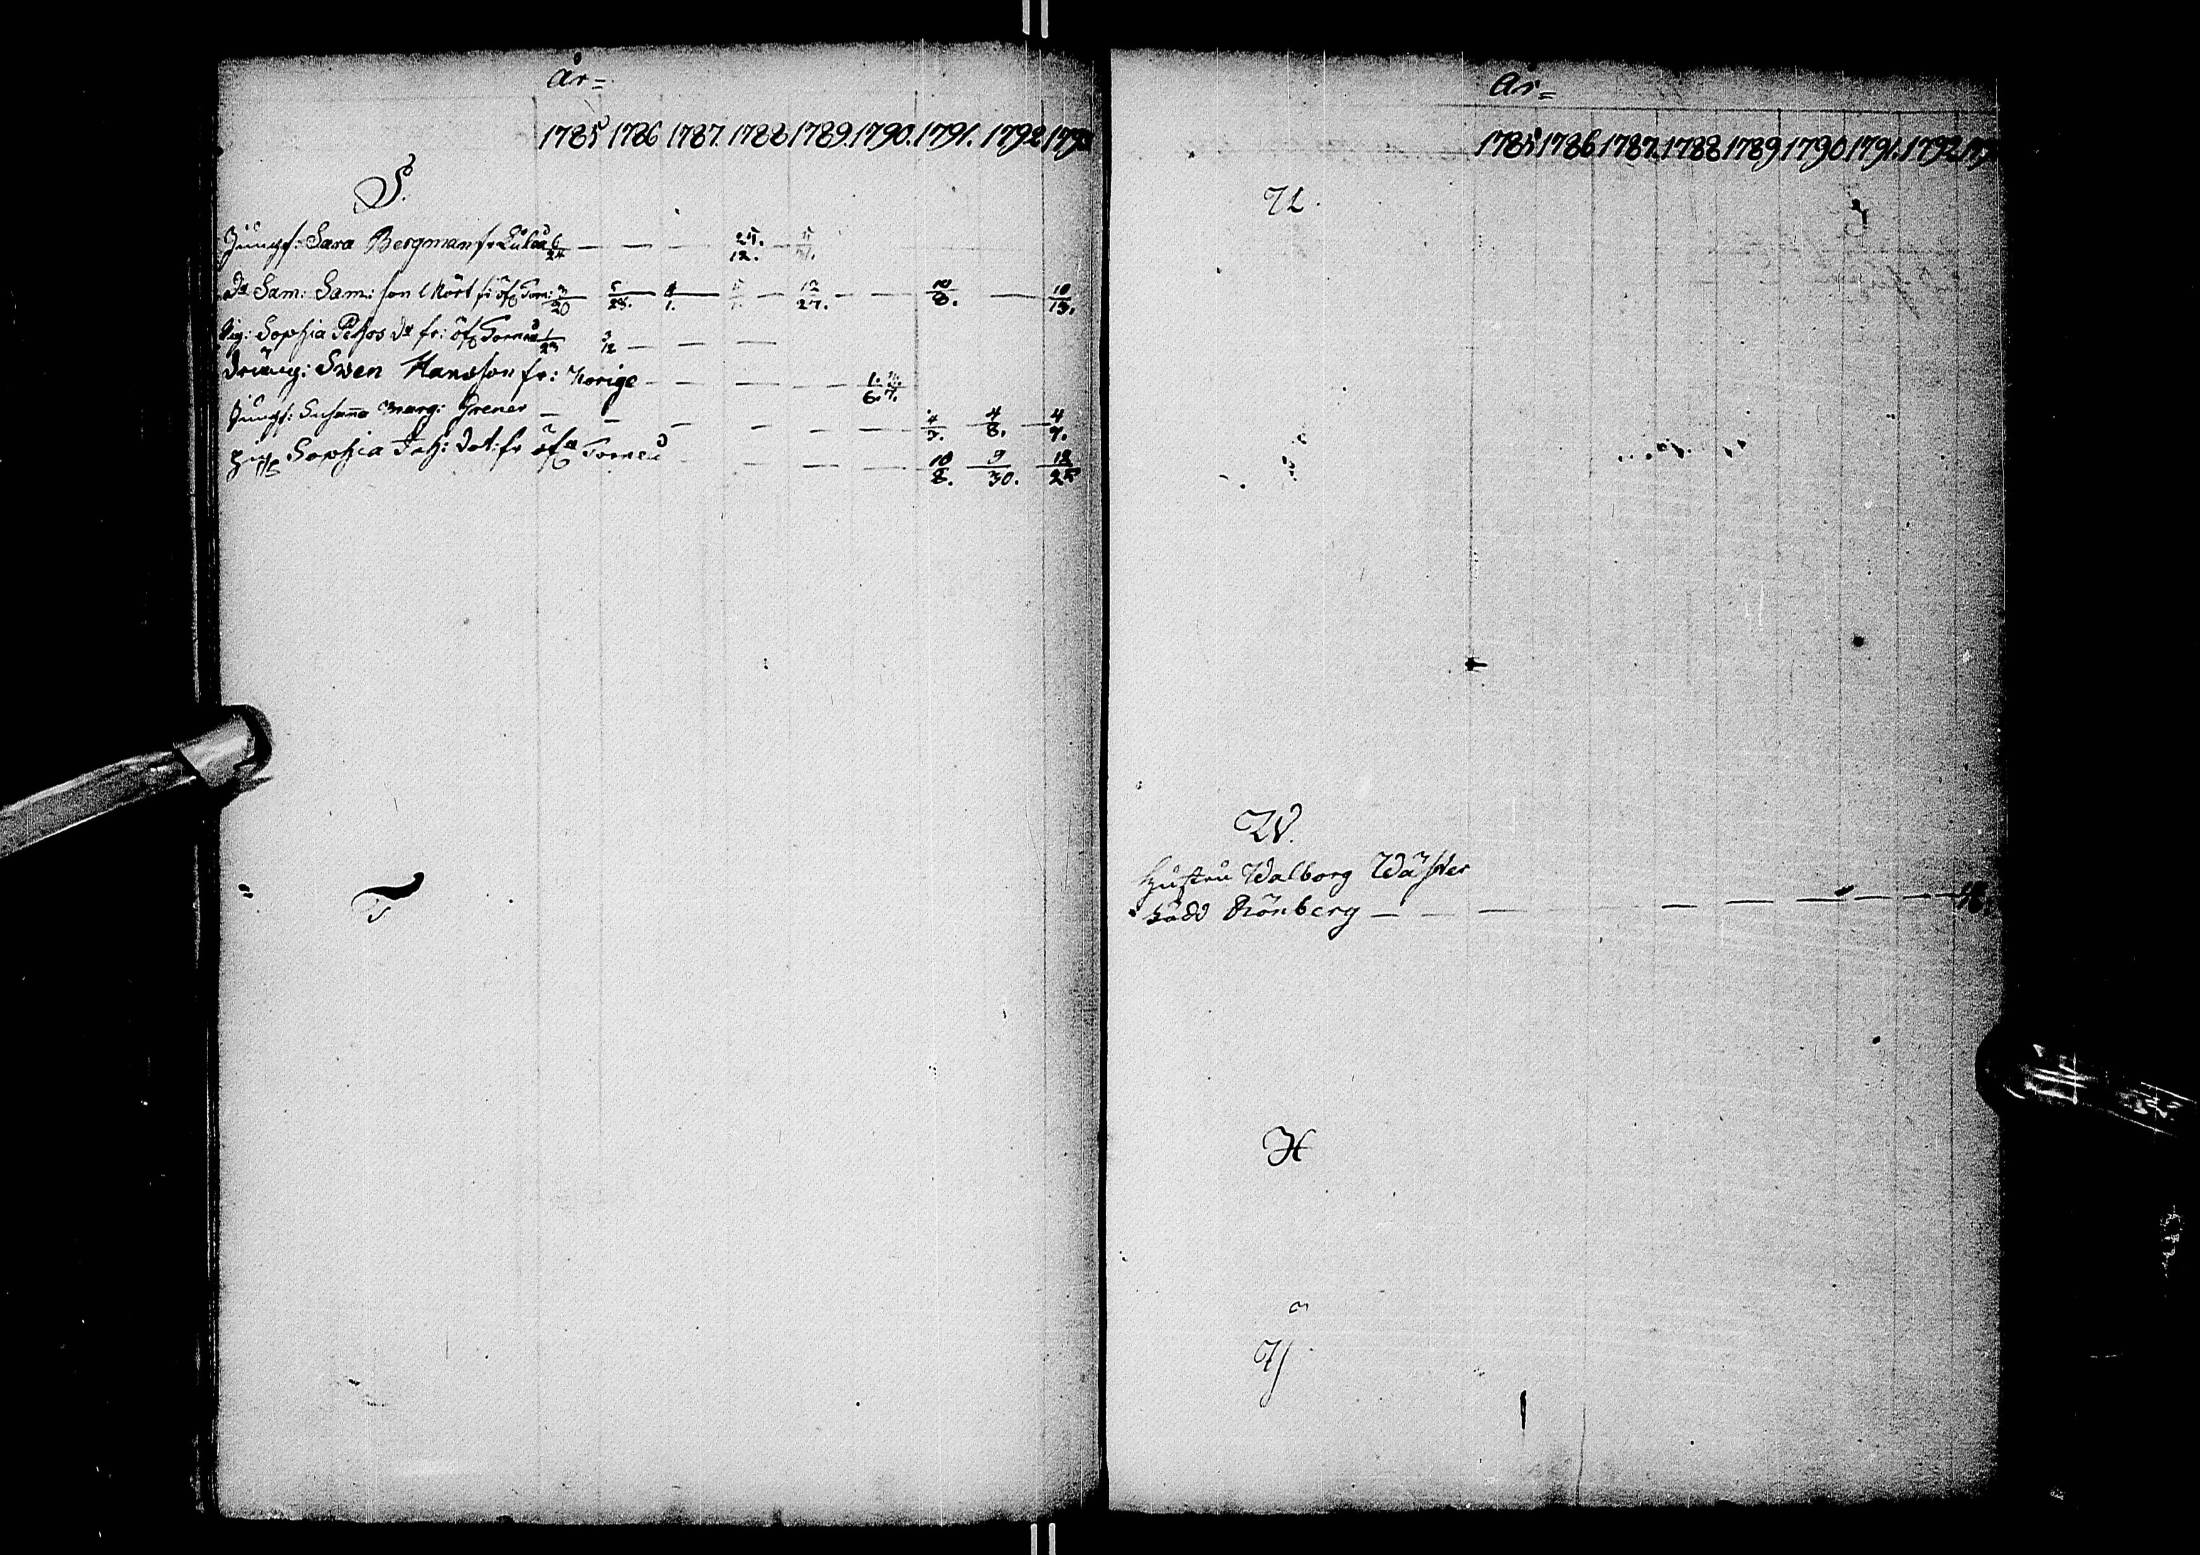 År=
1785 1786 1787. 1788 1789. 1790. 1791. 1792 179
S.
Jungf: Sara Bergman fr Luleå 6/24 — — — 25./12. —
Dr Sam: Sam: son Mört fr: öf Torn: 3/20 — 5/25. — 4/1. — — 12/27. — — 10/8. — 10/13.
Pig: Sophia Pehrs dr fr: öfr Torneå 1/23 3/12 — — —
Dräng: Swen Hansson fr: Norige — — — — 1./6.
Jungf: Susanna Marg: Grener — — — — — — 4/3. — 4/8. — 4/7.
Sophia Joh: dot: fr öfr Torneå — — — 10/8. — 9/30. — 12/25
T
År=
1785 1786 1787. 1788 1789 1790 1791. 1792
U.
W.
Hustru Walborg
född Rönberg — — — — — — — —